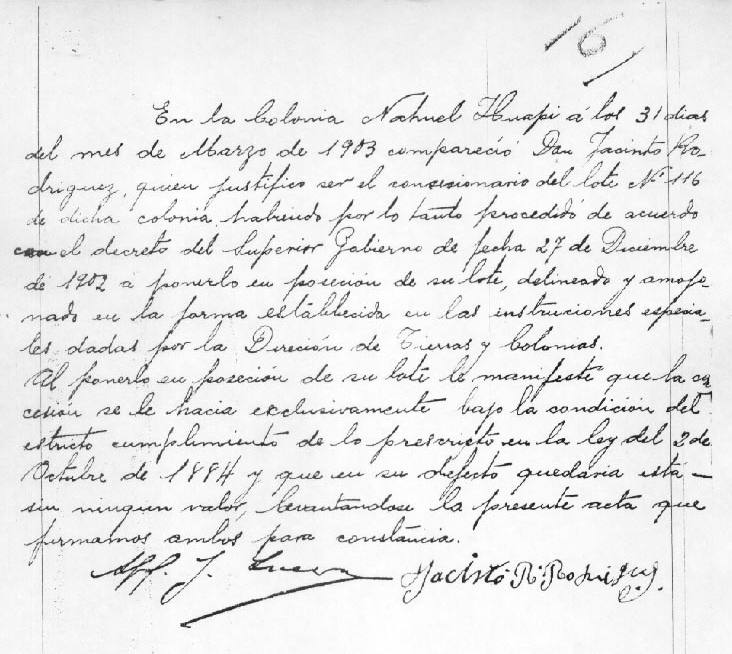 16
En la Colonia Nahuel Huapi á los 31 dias
del mes de Marzo de 1903 compareció Don Jacinto Ro-
driguez, quien justifico ser el consesionario del lote Nº 116
de dicha colonia habiendo por lo tanto procedido de acuerdo
con el decreto del Superior Gobierno de fecha 27 de Diciembre
de 1902 á ponerlo en poseción de su lote, delineado y amojo-
nado en la forma establecida en las instruciones especia-
les dadas por la Direción de Tierras y Colonias.
Al ponerlo en poseción de su lote le manifesté que la con
cesión se le hacia exclusivamente bajo la condición del
estricto cumplimiento de lo prescripto en la ley del 2 de
Octubre de 1884 y que en su defecto quedaria esta
sin ningun valor, levantandose la presente acta que
firmamos ambos para constáncia.
Jacinto R. Rodriguez